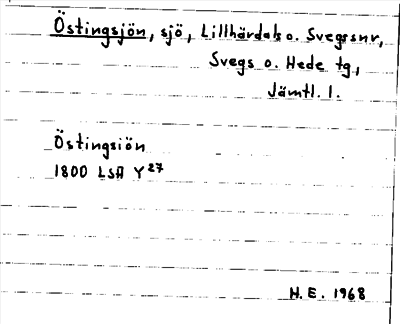 Östingsjön, sjö, Lillhärdals o. Svegssnr,
Svegs o. Hede tg,
Jämtl. l.
Östingsiön
1800 LSA Y²⁷
H.E. 1968